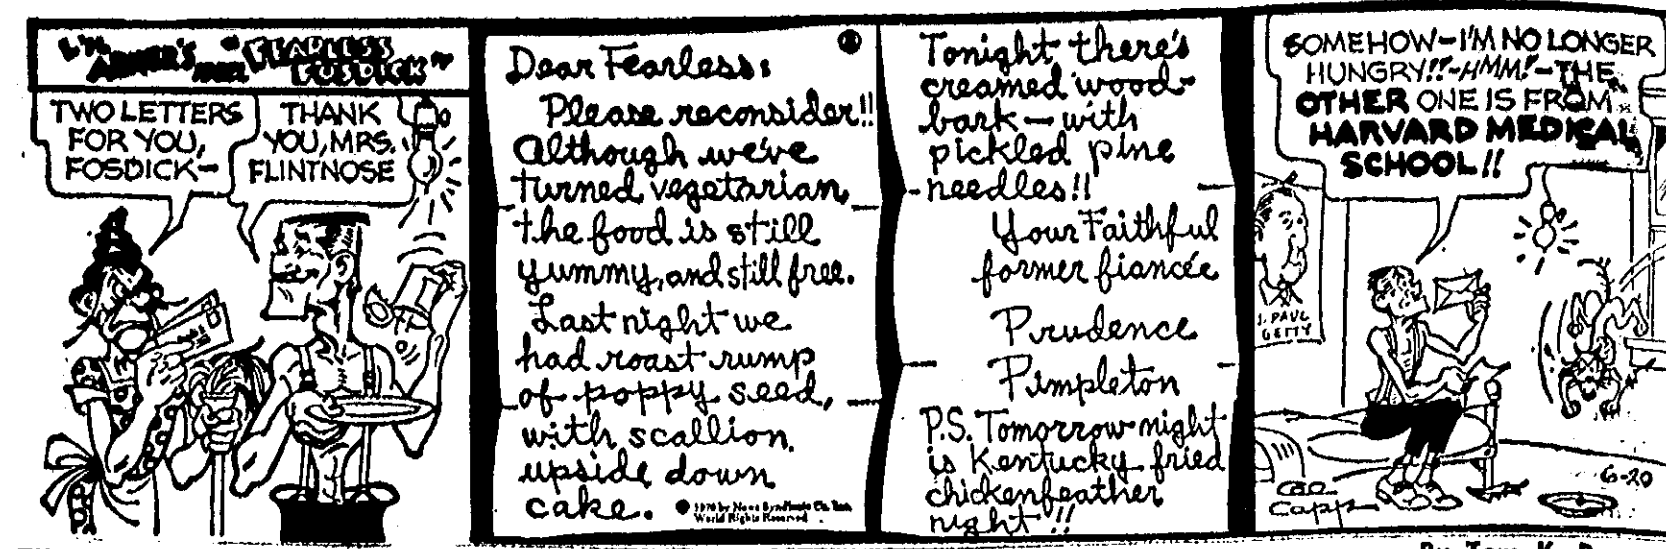 LI'L
ABNER'S IDEAL "FEARLESS
FOSDICK"
TWO LETTERS
FOR YOU,
FOSDICK—
THANK
YOU, MRS.
FLINTNOSE
Dear Fearless:
Please reconsider!!
Although we've
turned vegetarian,
the food is still
yummy, and still free.
Last night we
had roast rump
of poppy seed,
with scallion
upside down
cake.
1970 by News Syndicate Co. Inc.
World Rights Reserved
Tonight there's
creamed wood-
bark — with
pickled pine
needles!!
Your Faithful
former fiancée
Prudence
Pimpleton
P.S. Tomorrow night
is Kentucky fried
chickenfeather
night!!
SOMEHOW—I'M NO LONGER
HUNGRY!!—HMM!—THE
OTHER ONE IS FROM
HARVARD MEDICAL
SCHOOL!!
J. PAUL
GETTY
6-20
Al
Capp